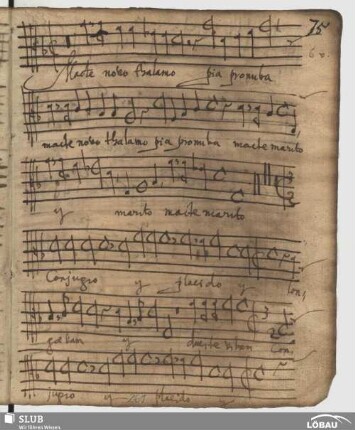 75
Macte novo thalamo pia pronuba
macte novo thalamo pia pronuba macte marito
y marito macte marito
Conjugio y placido y Con,
y Con,
jugio y placido
SLUB
Wir führen Wissen.
LÖBAU